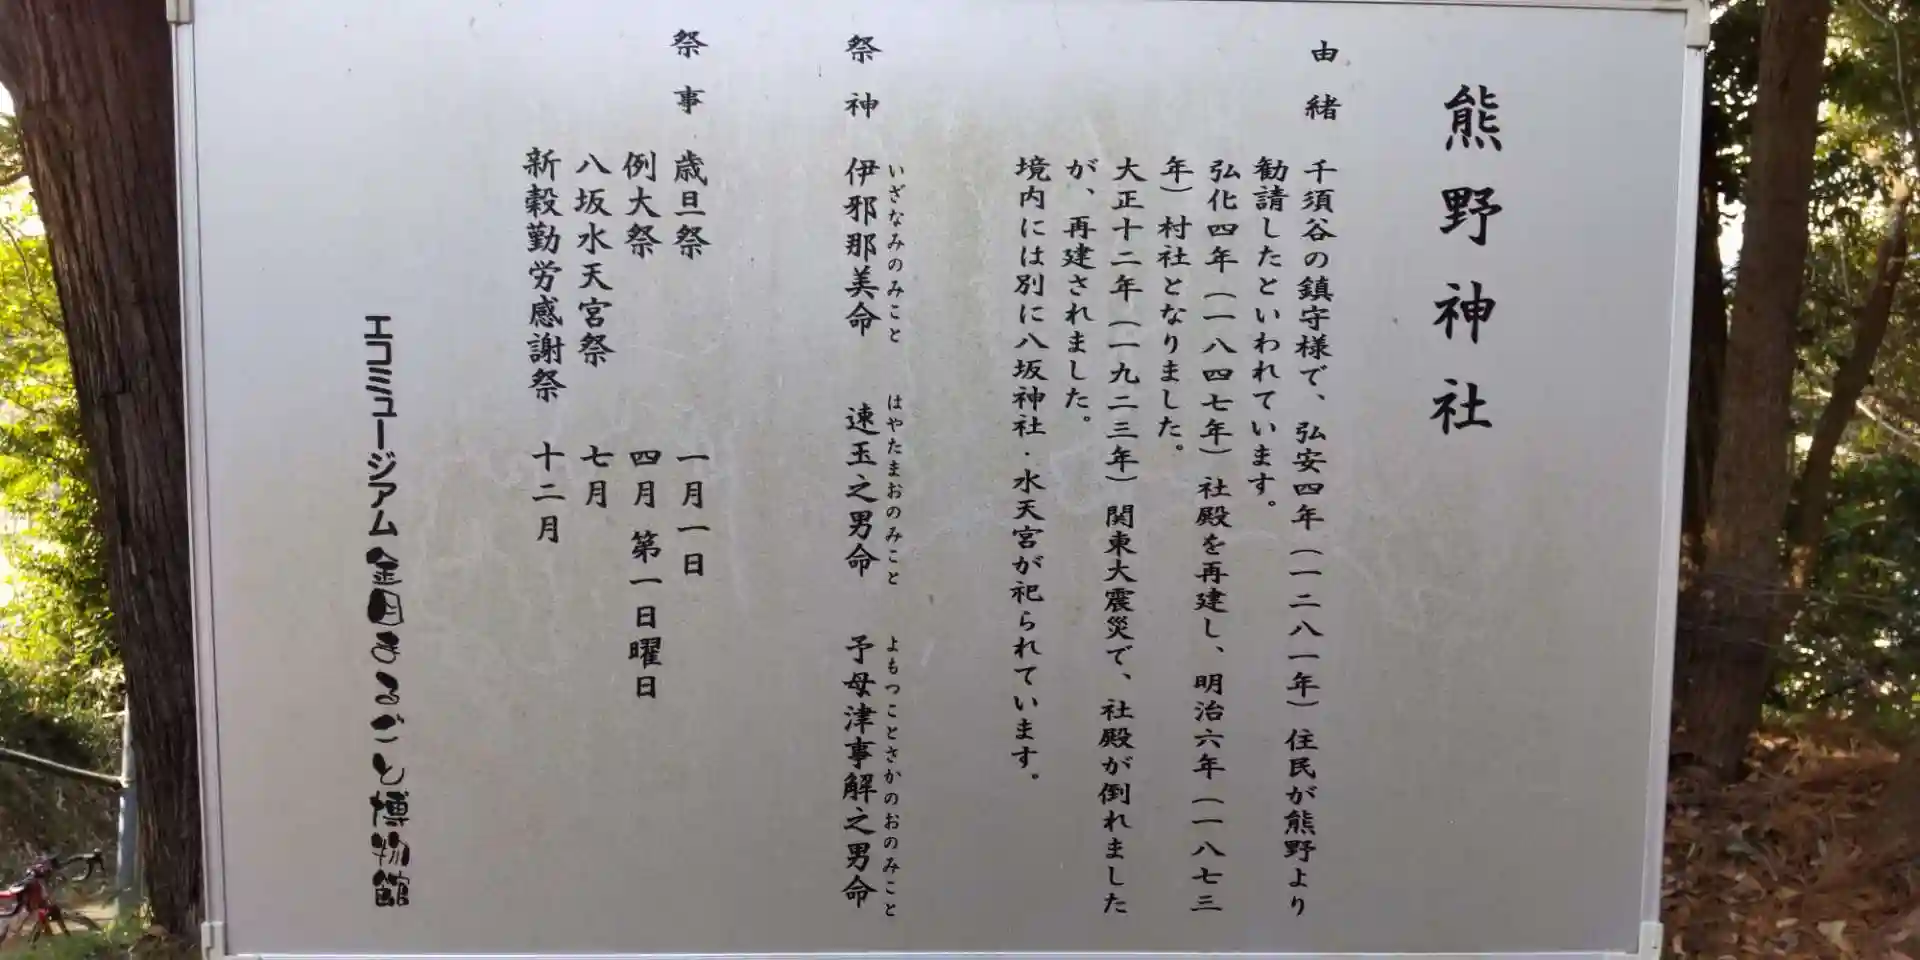 熊野神社
由緒 千須谷の鎮守様で、弘安四年(一二八一年)住民が熊野より
勧請したといわれています。
弘化四年(一八四七年)社殿を再建し、明治六年(一八七三
年)村社となりました。
大正十二年(一九二三年)関東大震災で、社殿が倒れました
が、再建されました。
境内には別に八坂神社・水天宮が祀られています。
いざなみのみこと はやたまおのみこと よもつことさかのおのみこと
祭神 伊邪那美命 速玉之男命 予母津事解之男命
祭事 歳旦祭 一月一日
例大祭 四月 第一日曜日
八坂水天宮祭 七月
新穀勤労感謝祭 十二月
エコミュージアム金目まるごと博物館